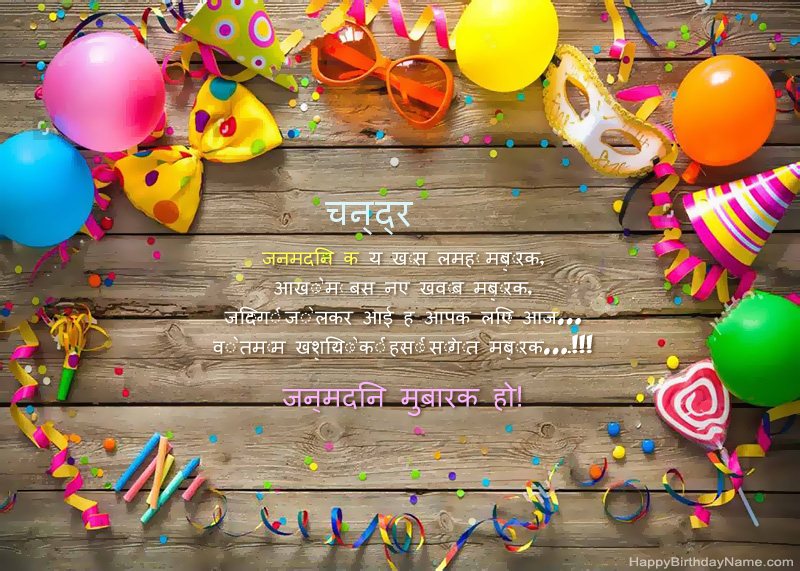 चन्द्र
जनमदिन क य खास लमहा मबारक,
आखोमे बस नए खवाब मबारक,
जिंदगी जो लेकर आई ह आपक लिए आज...
वो तमाम खुशियो की हसी सौगात मबारक...!!!
जन्मदिन मुबारक हो!
HappyBirthdayName.com